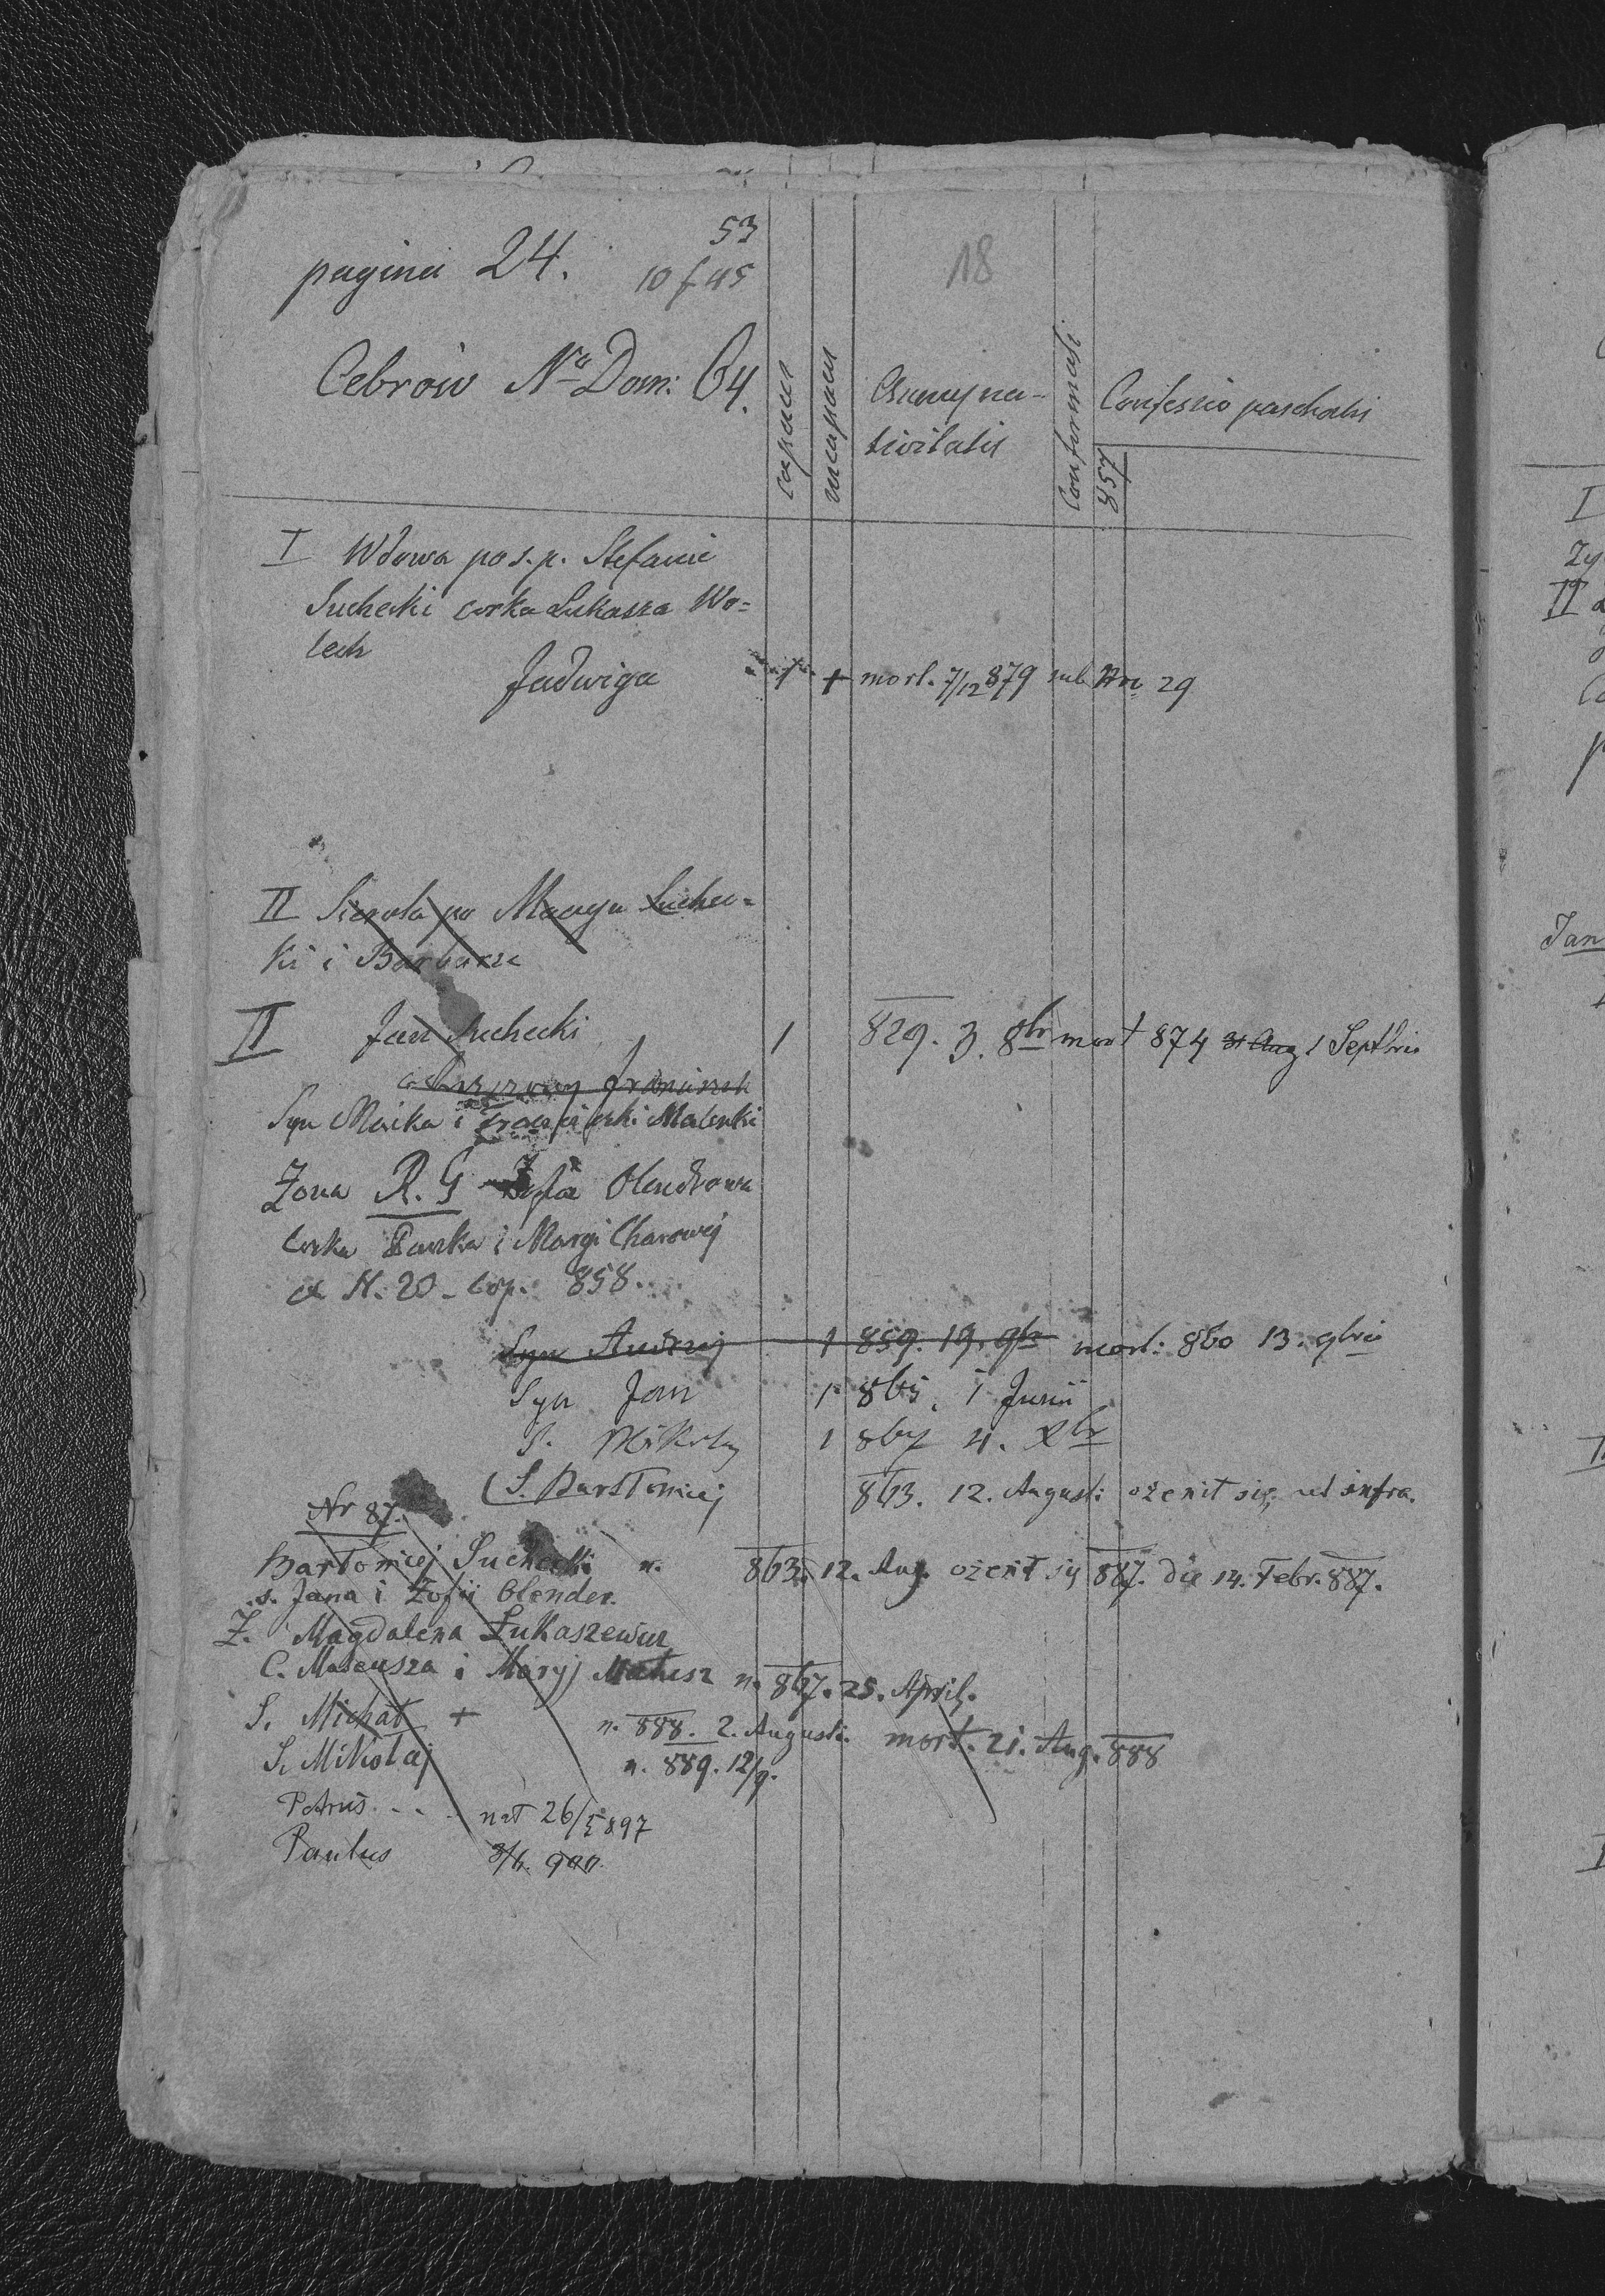 53
pagina 24. 10 f 45
18
Cebrów No Dom: 64.
capaces
incapaces
Annus na-
tivitatis
Confirmati
Confessio paschalis
857
I Wdowa po s.p. Stefanie
Suchecki corka Lukasza Wo-
Jadwiga 1 + mort. 7/12 879 sub Nro 29
II Sierota po Macyu Suchec-
ki i Barbarze
II Jan Suchecki 1 829. 3. 8br mort 874 31 Aug 1 Septbris
Franciszek
Syn Maćka i
Żona R. G Zofia Olendrowna
Corka Pawka i Maryi Charowej
ex N. 20 - Cop. 858.
Syn Andrzej 1 859. 19. 9br mort: 860 13. 9bris
Syn Jan 1 865. 1 Junii
S. Mikołaj 1 867 4. Xbr
S. Bartłomiej 863. 12. Augusti ożenił się, ut infra.
Nr 87.
Bartłomiej Suchecki n. 863. 12. Aug. ożenił się 887. die 14. Febr. 887.
s. Jana i Zofii Olender.
Ż. Magdalena Łukaszewicz
C. Mateusza i Maryj Matusz n. 867. 25. April.
S. Michał + n. 888. 2. Augusti. mort. 21. Aug. 888
S. Mikołaj n. 889. 12/9.
Petrus . . . nat 26/5 897
Paulus 3/6. 900.